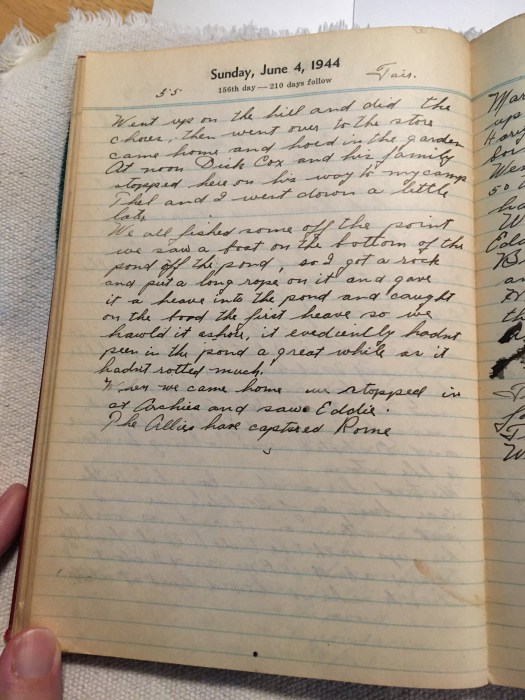 Sunday, June 4, 1944
156th day — 210 days follow
55 Fair.
Went up on the hill and did the
chores, then went over to the store
came home and hoed in the garden
At noon Dick Cox and his family
stopped here on his way to my camp
Thel and I went down a little
late
We all fished some off the point
we saw a boat on the bottom of the
pond off the pond, so I got a rock
and put a long rope on it and gave
it a heave into the pond and caught
on the the first heave so we
hawld it ashore, it evediently hadnt
peen in the pond a great while as it
hadnt rotted much.
When we came home we stopped in
at Archies and saw Eddie.
The Allies have captured Rome
Mar
ups
Harry
Wen
50
ha
W
Edd
an
th
W